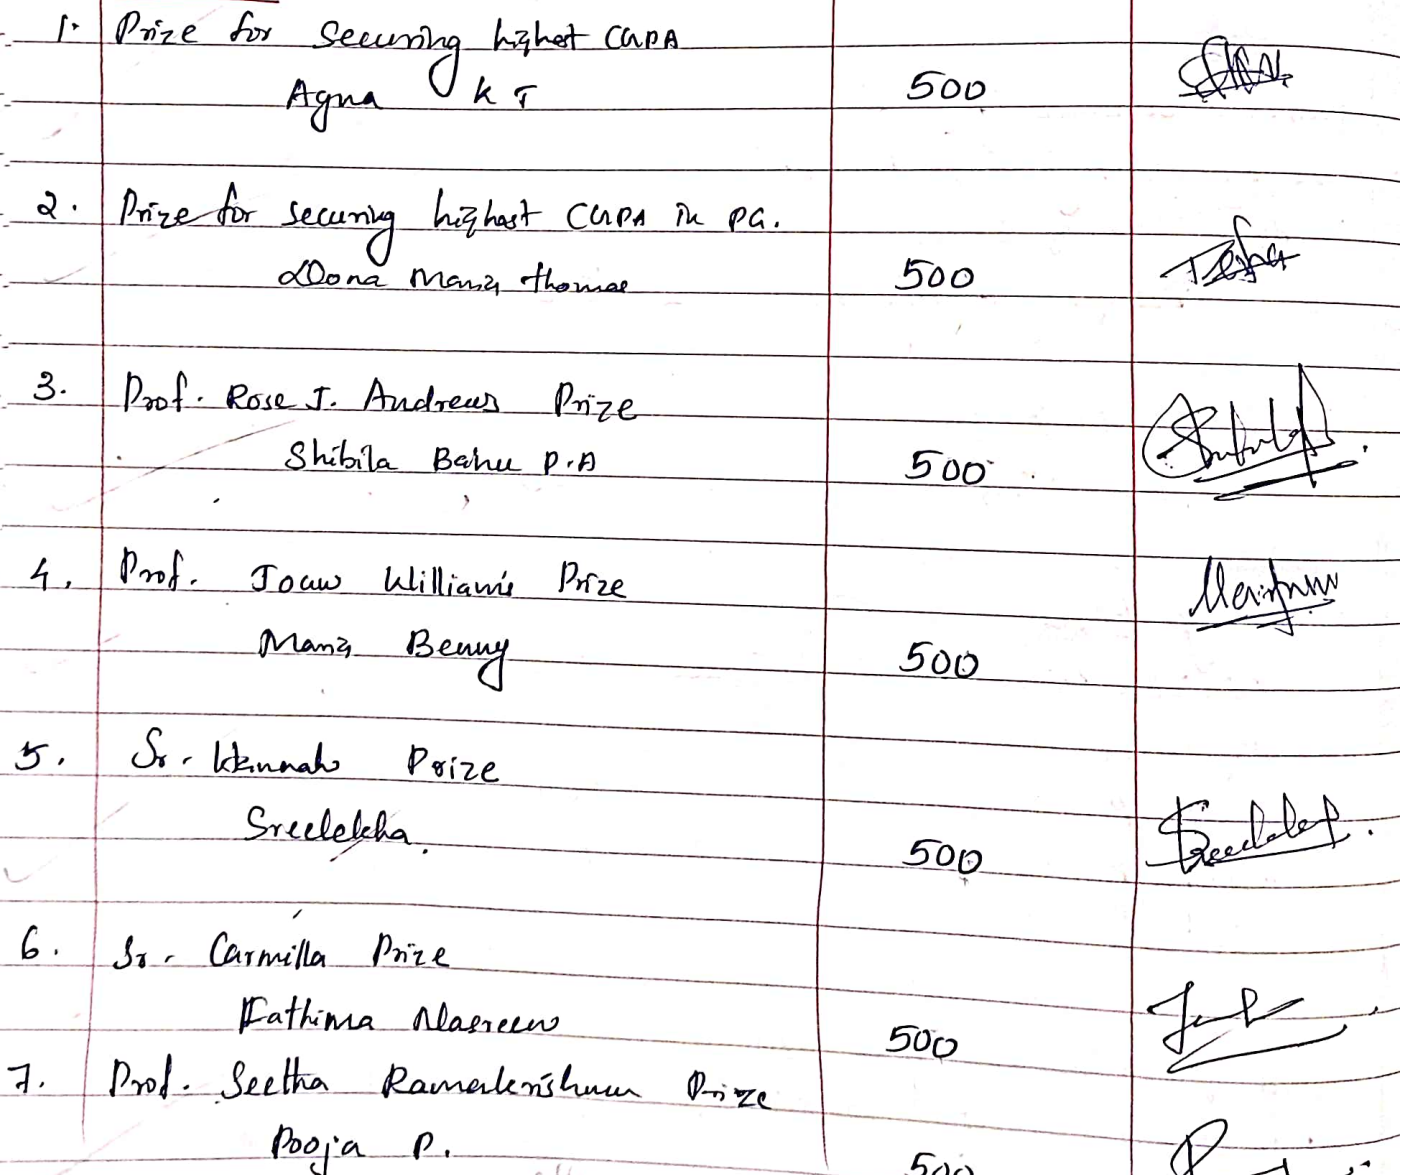 1. Prize for Securing highest CGPA
Agna K T 500
2. Prize for securing highest CGPA in PG.
Dona Maria Thomas 500
3. Prof. Rose J. Andrews Prize
Shibila Banu P.A 500
4. Prof. Joan William's Prize
Maria Benny 500
5. Sr. Hannah Prize
Sreelekha. 500
6. Sr. Carmilla Prize
Fathima Nasreen 500
7. Prof. Seetha Ramakrishnan Prize
Pooja P. 500